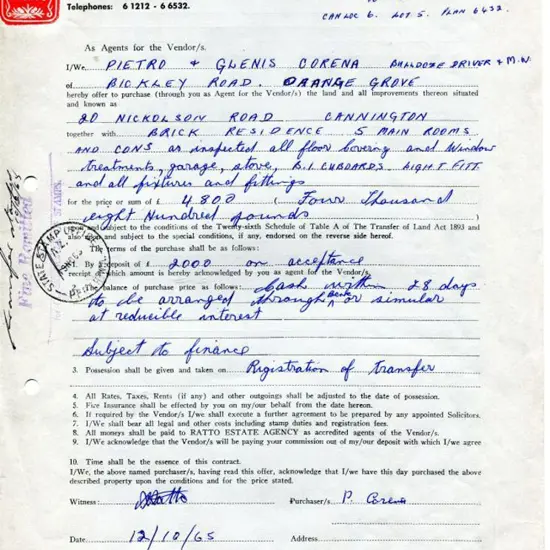 Telephones: 6 1212 - 6 6532.
CAN LOC 6. LOT 5. PLAN 6432.
As Agents for the Vendor/s.
I/We PIETRO + GLENIS CORENA BULLDOZE DRIVER + M.W.
of BICKLEY ROAD. ORANGE GROVE
hereby offer to purchase (through you as Agent for the Vendor/s) the land and all improvements thereon situated
and known as
20 NICKOLSON ROAD CANNINGTON
together with BRICK RESIDENCE 5 MAIN ROOMS
AND CONS as inspected all floor covering and Window
treatments, garage, stove, B.I. CUBOARDS LIGHT FITT
and all fixtures and fittings
for the price or sum of £ 4,800 ( Four Thousand
eight Hundred pounds )
and subject to the conditions of the Twenty-sixth Schedule of Table A of The Transfer of Land Act 1893 and
also and subject to the special conditions, if any, endorsed on the reverse side hereof.
The terms of purchase shall be as follows:
1. By deposit of £ 2000 on acceptance
receipt of which amount is hereby acknowledged by you as agent for the Vendor/s.
The balance of purchase price as follows: Cash within 28 days
to be arranged through Bank or simular
at reducible interest
Subject to finance
3. Possession shall be given and taken on Registration of transfer
4. All Rates, Taxes, Rents (if any) and other outgoings shall be adjusted to the date of possession.
5. Fire Insurance shall be effected by you on my/our behalf from the date hereon.
6. If required by the Vendor/s I/we shall execute a further agreement to be prepared by any appointed Solicitors.
7. I/We shall bear all legal and other costs including stamp duties and registration fees.
8. All moneys shall be paid to RATTO ESTATE AGENCY as accredited agents of the Vendor/s.
9. I/We acknowledge that the Vendor/s will be paying your commission out of my/our deposit with which I/we agree
10. Time shall be the essence of this contract.
I/We, the above named purchaser/s, having read this offer, acknowledge that I/we have this day purchased the above
described property upon the conditions and for the price stated.
Witness: Ratto Purchaser/s P. Corena
Date 12/10/65 Address